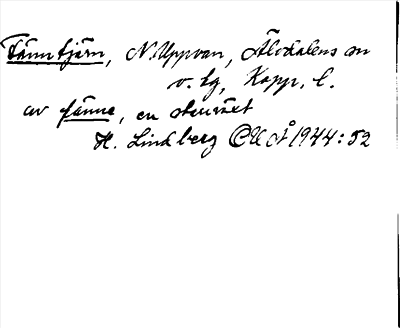 Tänntjärn, N. Uppvan, Älvdalens sn
v. lg, Kopp. l.
av tänne, en
H. Lindberg OUÅ 1944: 52